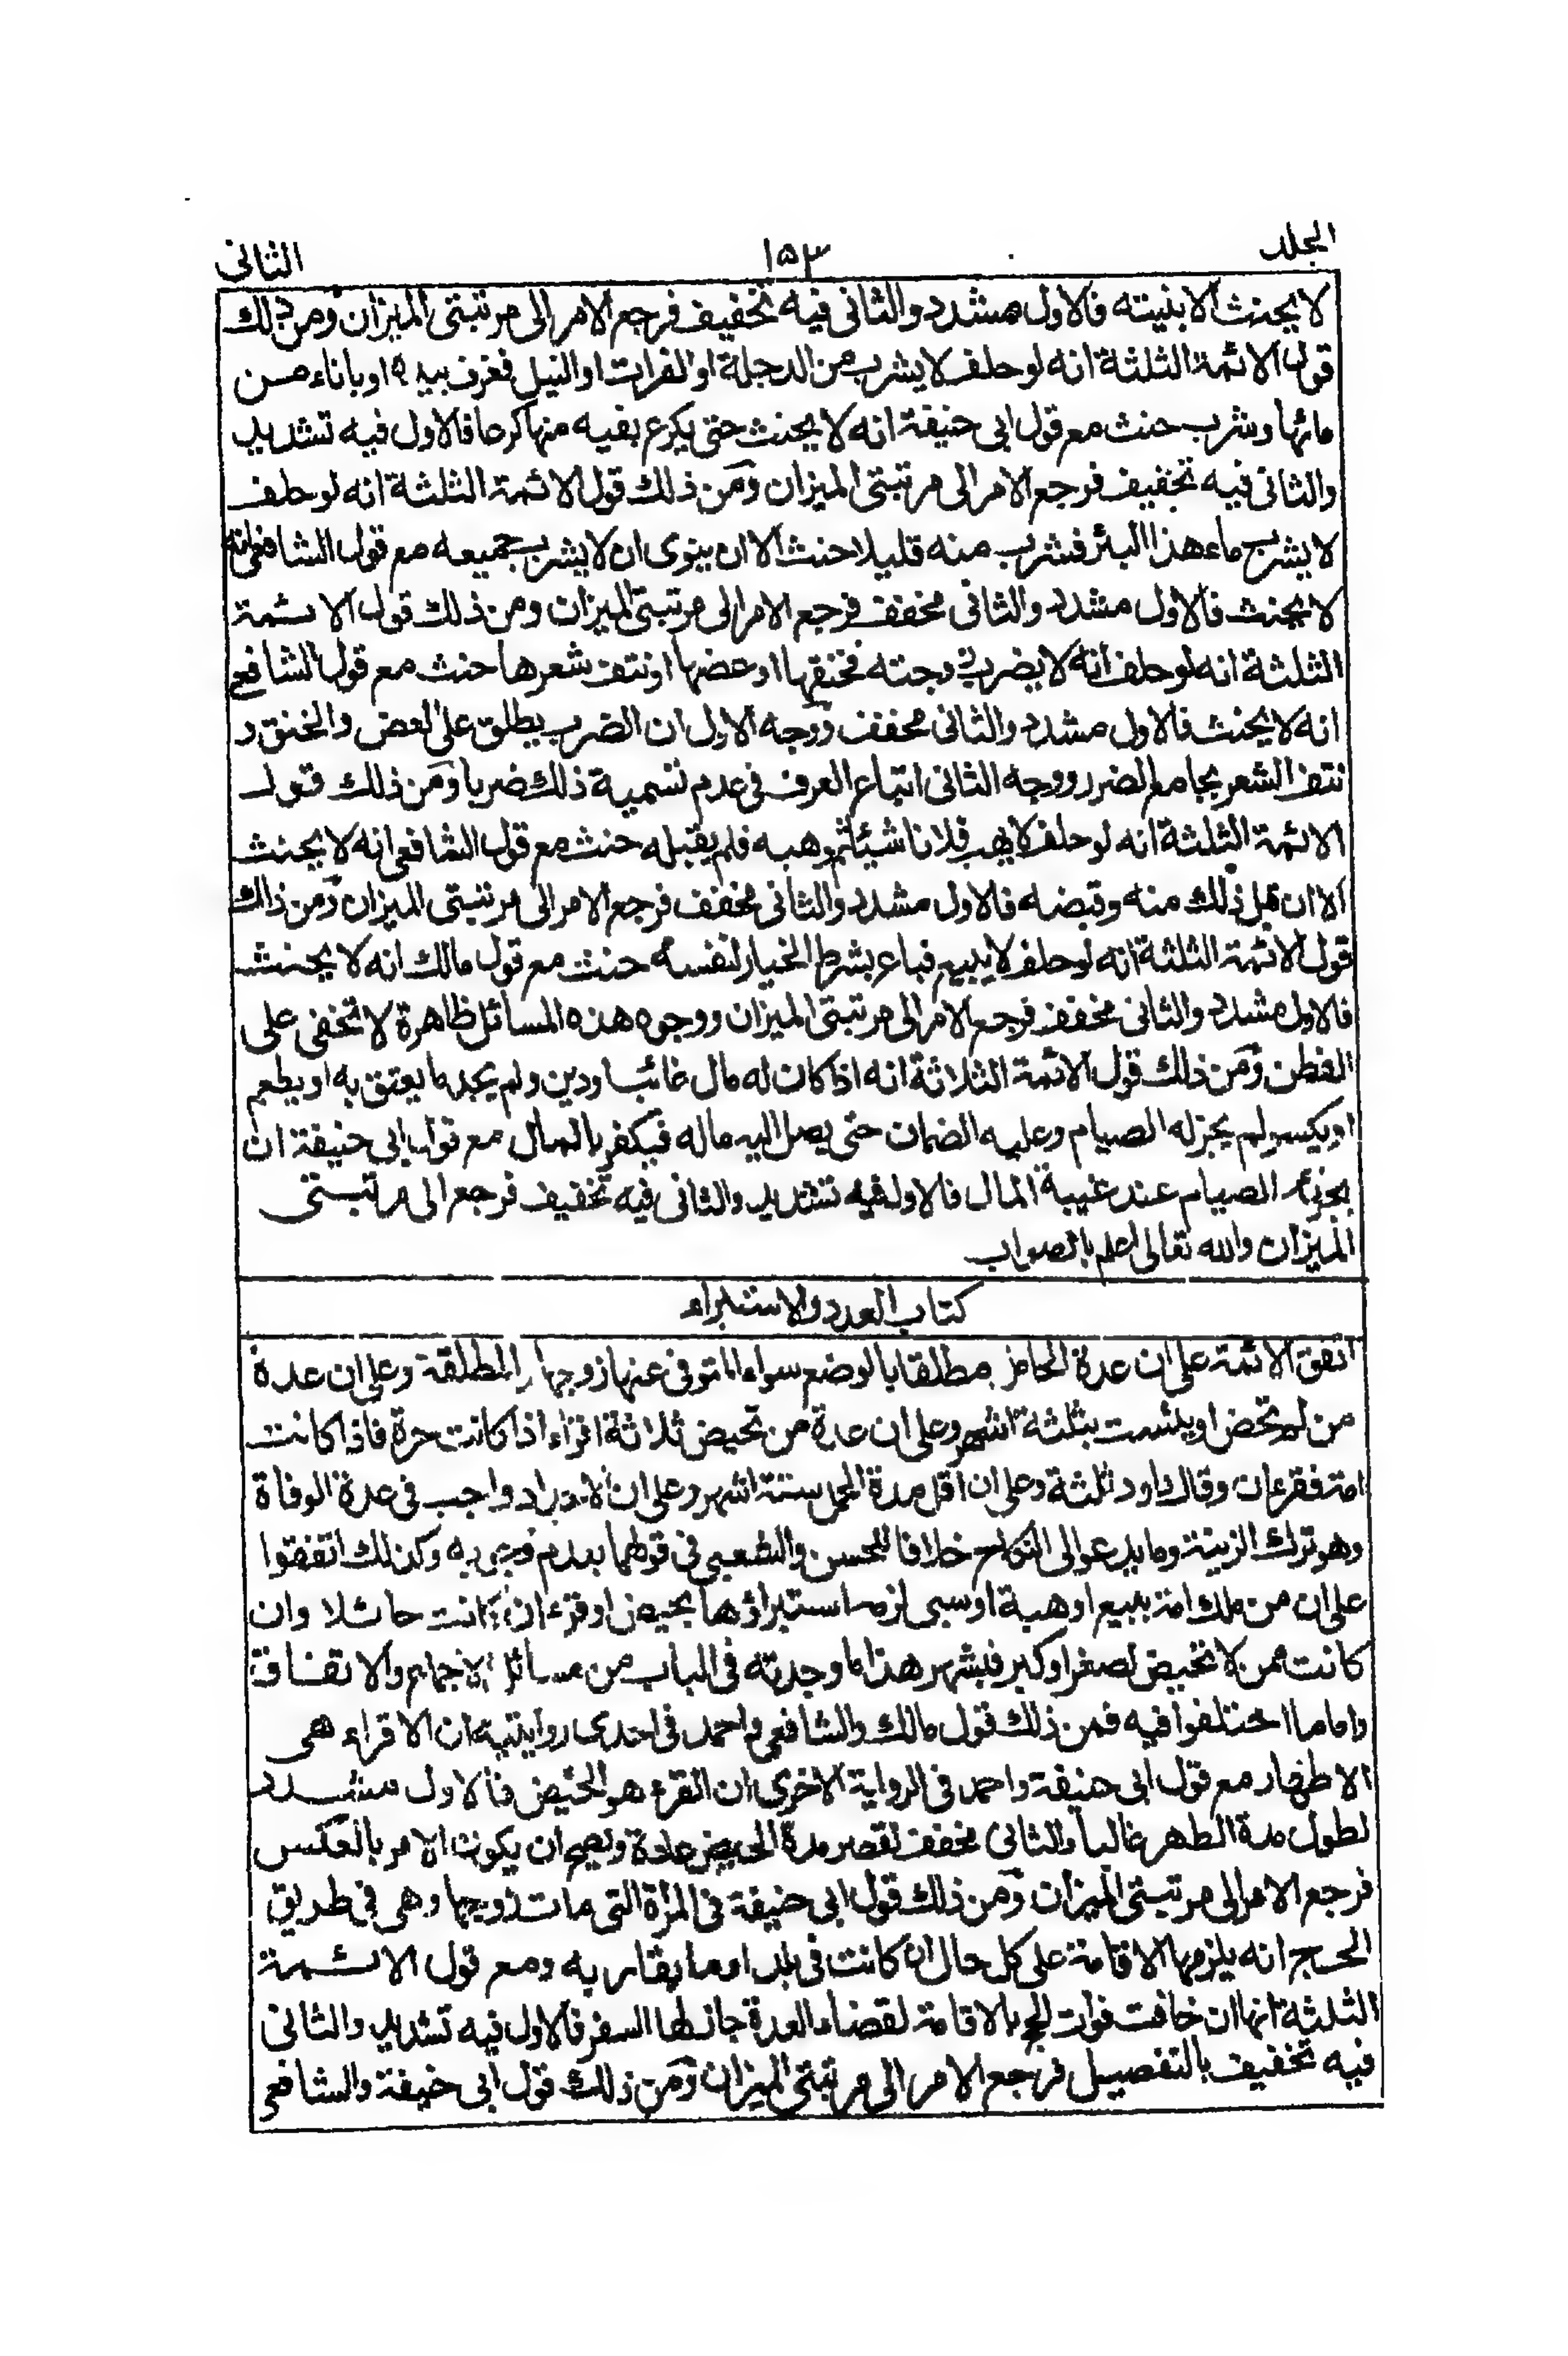 المجلد ١٥٣ الثانى
لا يحنث الا بنيته فالاول مشدد والثانى فيه تخفيف فرجع الامر الى مرتبتى الميزان ومن ذلك
قول الائمة الثلثة انه لو حلف لا يشرب من الدجلة او الفرات او النيل فغرف بيده او باناء من
مائها وشرب حنث مع قول ابى حنيفة انه لا يحنث حتى يكرع بفيه منها كرعا فالاول فيه تشديد
والثانى فيه تخفيف فرجع الامر الى مرتبتى الميزان ومن ذلك قول الائمة الثلثة انه لو حلف
لا يشرب ماء هذا البئر فشرب منه قليلا حنث الا ان ينوى ان لا يشرب جميعه مع قول الشافعى انه
لا يحنث فالاول مشدد والثانى مخفف فرجع الامر الى مرتبتى الميزان ومن ذلك قول الائمة
الثلثة انه لو حلف انه لا يضرب زوجته فخنقها او عضها او نتف شعرها حنث مع قول الشافعى
انه لا يحنث فالاول مشدد والثانى مخفف ووجه الاول ان الضرب يطلق على العض والخنق و
نتف الشعر بجامع الضرر ووجه الثانى اتباع العرف فى عدم تسمية ذلك ضربا ومن ذلك قول
الائمة الثلثة انه لو حلف لا يهب فلانا شيئا ثم وهبه فلم يقبله حنث مع قول الشافعى انه لا يحنث
الا ان قبل ذلك منه وقبضه فالاول مشدد والثانى مخفف فرجع الامر الى مرتبتى الميزان ومن ذالك
قول الائمة الثلثة انه لو حلف لا يبيع فباع بشرط الخيار لنفسه حنث مع قول مالك انه لا يحنث
فالاول مشدد والثانى مخفف فرجع الامر الى مرتبتى الميزان ووجوه هذه المسائل ظاهرة لا تخفى على
الفطن ومن ذلك قول الائمة الثلاثة انه اذا كان له مال غائب او دين ولم يجد ما يعتق به او يطعم
او يكسو لم يجز له الصيام وعليه الضمان حتى يصل اليه ماله فيكفر بالمال مع قول ابى حنيفة انه
يجزئه الصيام عند غيبة المال فالاول فيه تشديد والثانى فيه تخفيف فرجع الى مرتبتى
الميزان والله تعالى اعلم بالصواب
كتاب العدد والاستبراء
اتفق الائمة على ان عدة الحامل مطلقا بالوضع سواء المتوفى عنها زوجها والمطلقة وعلى ان عدة
من لم تحض او يئست بثلثة اشهر وعلى ان عدة من تحيض ثلاثة اقراء اذا كانت حرة فاذا كانت
امة فقرءان وقال داود ثلثة وعلى ان اقل مدة الحمل ستة اشهر وعلى ان الاحداد واجب فى عدة الوفاة
وهو ترك الزينة وما يدعو الى النكاح خلافا للحسن والشعبى فى قولهما بعدم وجوبه وكذلك اتفقوا
على ان من ملك امة ببيع او هبة او سبى لزمه استبراؤها بحيض او قرء ان كانت حائلا وان
كانت ممن لا تحيض لصغر او كبر فبشهر هذا ما وجدته فى الباب من مسائل الاجماع والاتفاق
واما ما اختلفوا فيه فمن ذلك قول مالك والشافعى واحمد فى احدى روايتيه ان الاقراء هى
الاطهار مع قول ابى حنيفة واحمد فى الرواية الاخرى ان القرء هو الحيض فالاول مشدد
لطول مدة الطهر غالبا والثانى مخفف لقصر مدة الحيض عادة ويصح ان يكون الامر بالعكس
فرجع الامر الى مرتبتى الميزان ومن ذلك قول ابى حنيفة فى المرأة التى مات زوجها وهى فى طريق
الحج انه يلزمها الاقامة على كل حال ان كانت فى بلد او ما يقاربه ومع قول الائمة
الثلثة انها ان خافت فوات الحج بالاقامة لقضاء العدة جاز لها السفر فالاول فيه تشديد والثانى
فيه تخفيف بالتفصيل فرجع الامر الى مرتبتى الميزان ومن ذلك قول ابى حنيفة والشافعى